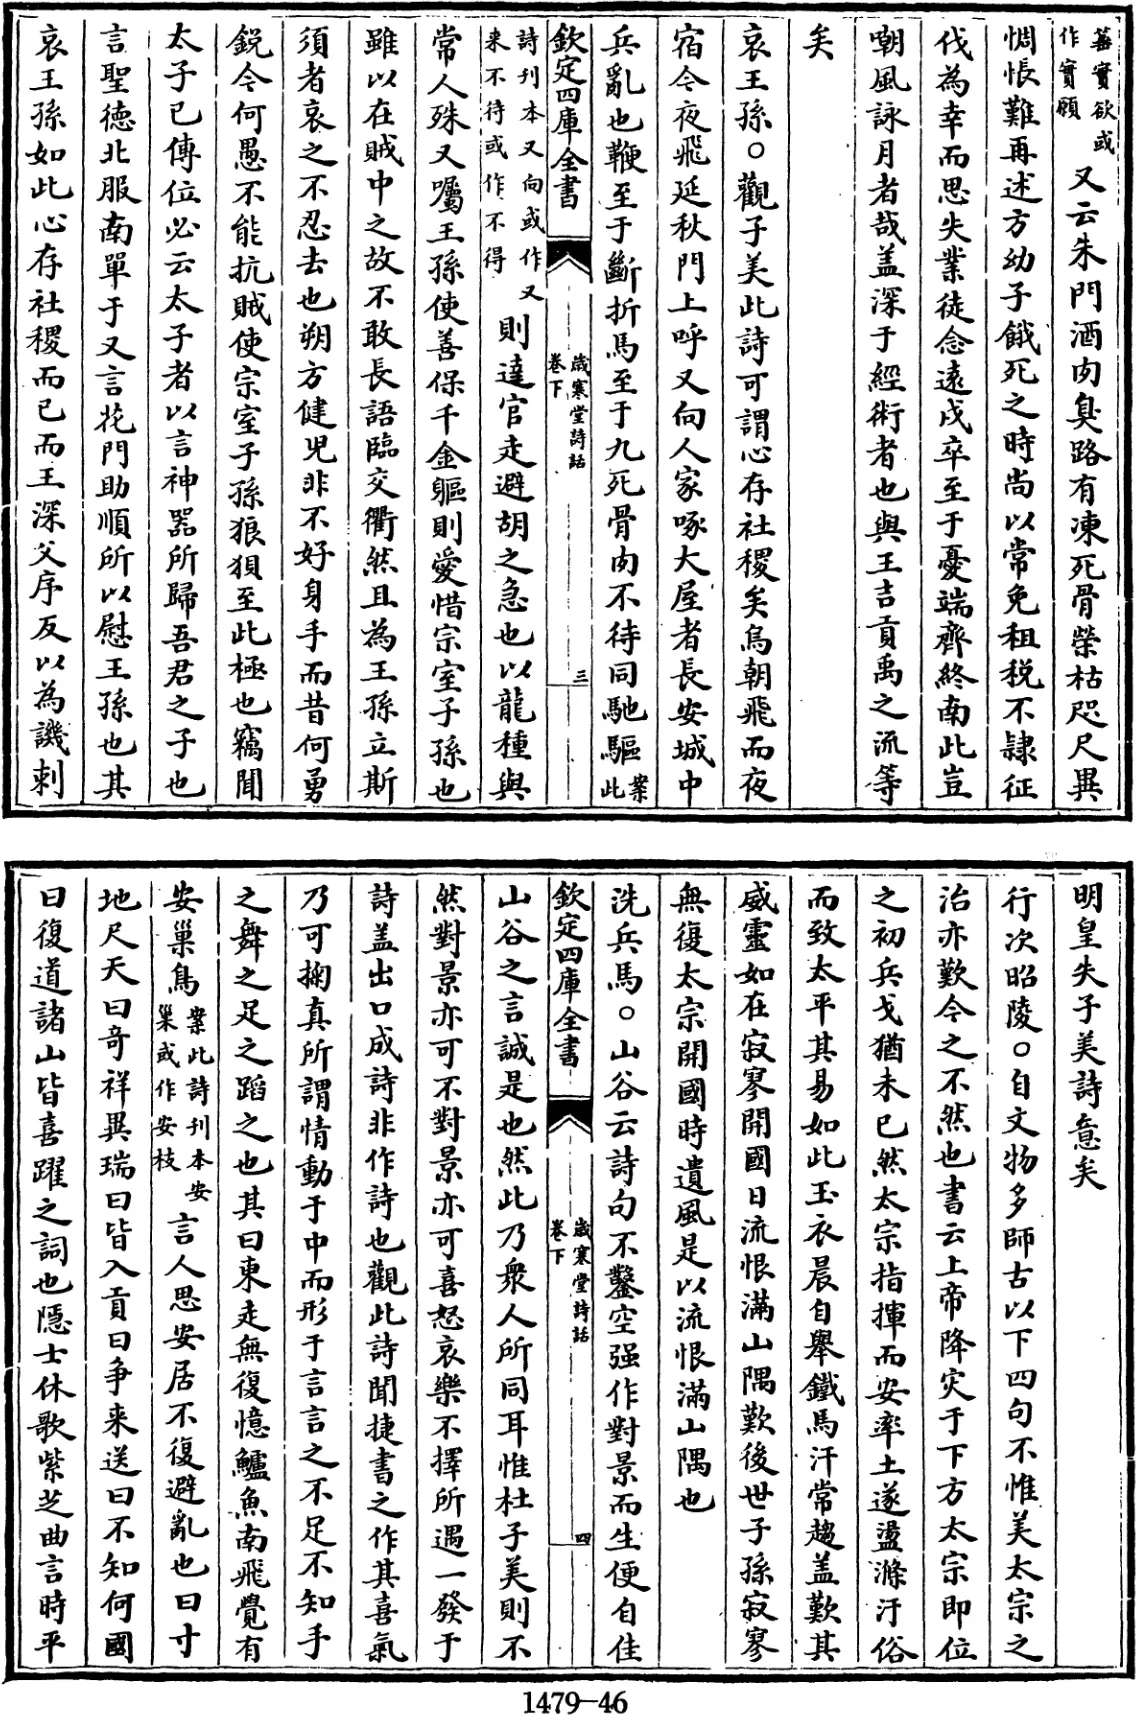 蓄實欲或
作實願
又云朱門酒肉臭路有凍死骨榮枯咫尺異
惆悵難再述方幼子餓死之時尚以常免租税不隷征
伐為幸而思失業徒念逺戍卒至于憂端齊終南此豈
嘲風詠月者哉盖深于經術者也與王吉貢禹之流等
矣
哀王孫○觀子美此詩可謂心存社稷矣烏朝飛而夜
宿今夜飛延秋門上呼又向人家啄大屋者長安城中
兵亂也鞭至于斷折馬至于九死骨肉不待同馳驅
案
此
欽定四庫全書
嵗寒堂詩話
卷下
三
詩刋本又向或作又
来不待或作不得
則達官走避胡之急也以龍種與
常人殊又囑王孫使善保千金軀則愛惜宗室子孫也
雖以在賊中之故不敢長語臨交衢然且為王孫立斯
須者哀之不忍去也朔方健兒非不好身手而昔何勇
鋭今何愚不能抗賊使宗室子孫狼狽至此極也竊聞
太子已傳位必云太子者以言神器所歸吾君之子也
言聖徳北服南單于又言花門助順所以慰王孫也其
哀王孫如此心存社稷而已而王深父序反以為譏刺
明皇失子美詩意矣
行次昭陵○自文物多師古以下四句不惟美太宗之
治亦歎今之不然也書云上帝降灾于下方太宗即位
之初兵戈猶未已然太宗指揮而安率土遂盪滌汙俗
而致太平其易如此玉衣晨自舉鐵馬汗常趨盖歎其
威靈如在寂寥開國日流恨滿山隅歎後世子孫寂寥
無復太宗開國時遺風是以流恨滿山隅也
洗兵馬○山谷云詩句不鑿空强作對景而生便自佳
欽定四庫全書
嵗寒堂詩話
卷下
四
山谷之言誠是也然此乃衆人所同耳惟杜子美則不
然對景亦可不對景亦可喜怒哀樂不擇所遇一發于
詩盖出口成詩非作詩也觀此詩聞捷書之作其喜氣
乃可掬真所謂情動于中而形于言言之不足不知手
之舞之足之蹈之也其曰東走無復憶鱸魚南飛覺有
安巢鳥
案此詩刋本安
巢或作安枝
言人思安居不復避亂也曰寸
地尺天曰竒祥異瑞曰皆入貢曰争来送曰不知何國
曰復道諸山皆喜躍之詞也隱士休歌紫芝曲言時平
1479-46